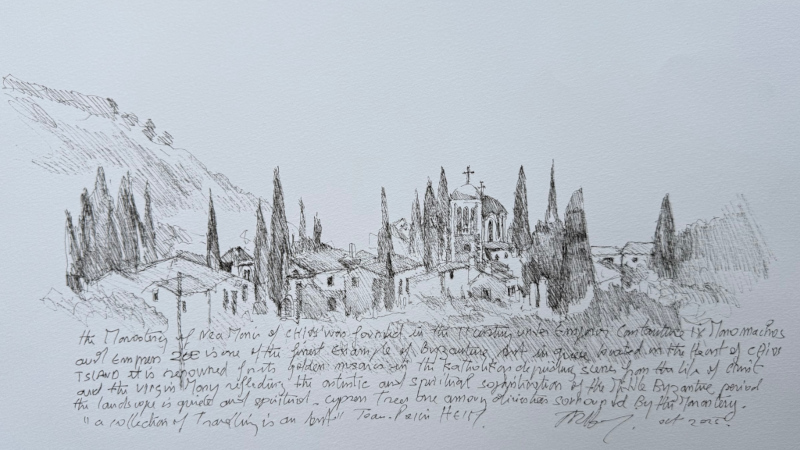 the Monastery of Nea Moni of Chios was founded in the 11 century under Emperor Constantine IX Monomachos
and Empress ZOE is one of the finest Example of Byzantine Art in greece located in the Heart of CHIOS
ISLAND it is renowned for its golden mosaics in the Katholikon depicting scenes from the life of Christ
and the Virgin Mary reflecting the artistic and spiritual sophistication of the Middle Byzantine period
the landscape is quiet and spiritual. cypress Trees olive among
By the Monastery.
"a collection of Travelling is an Art" oct